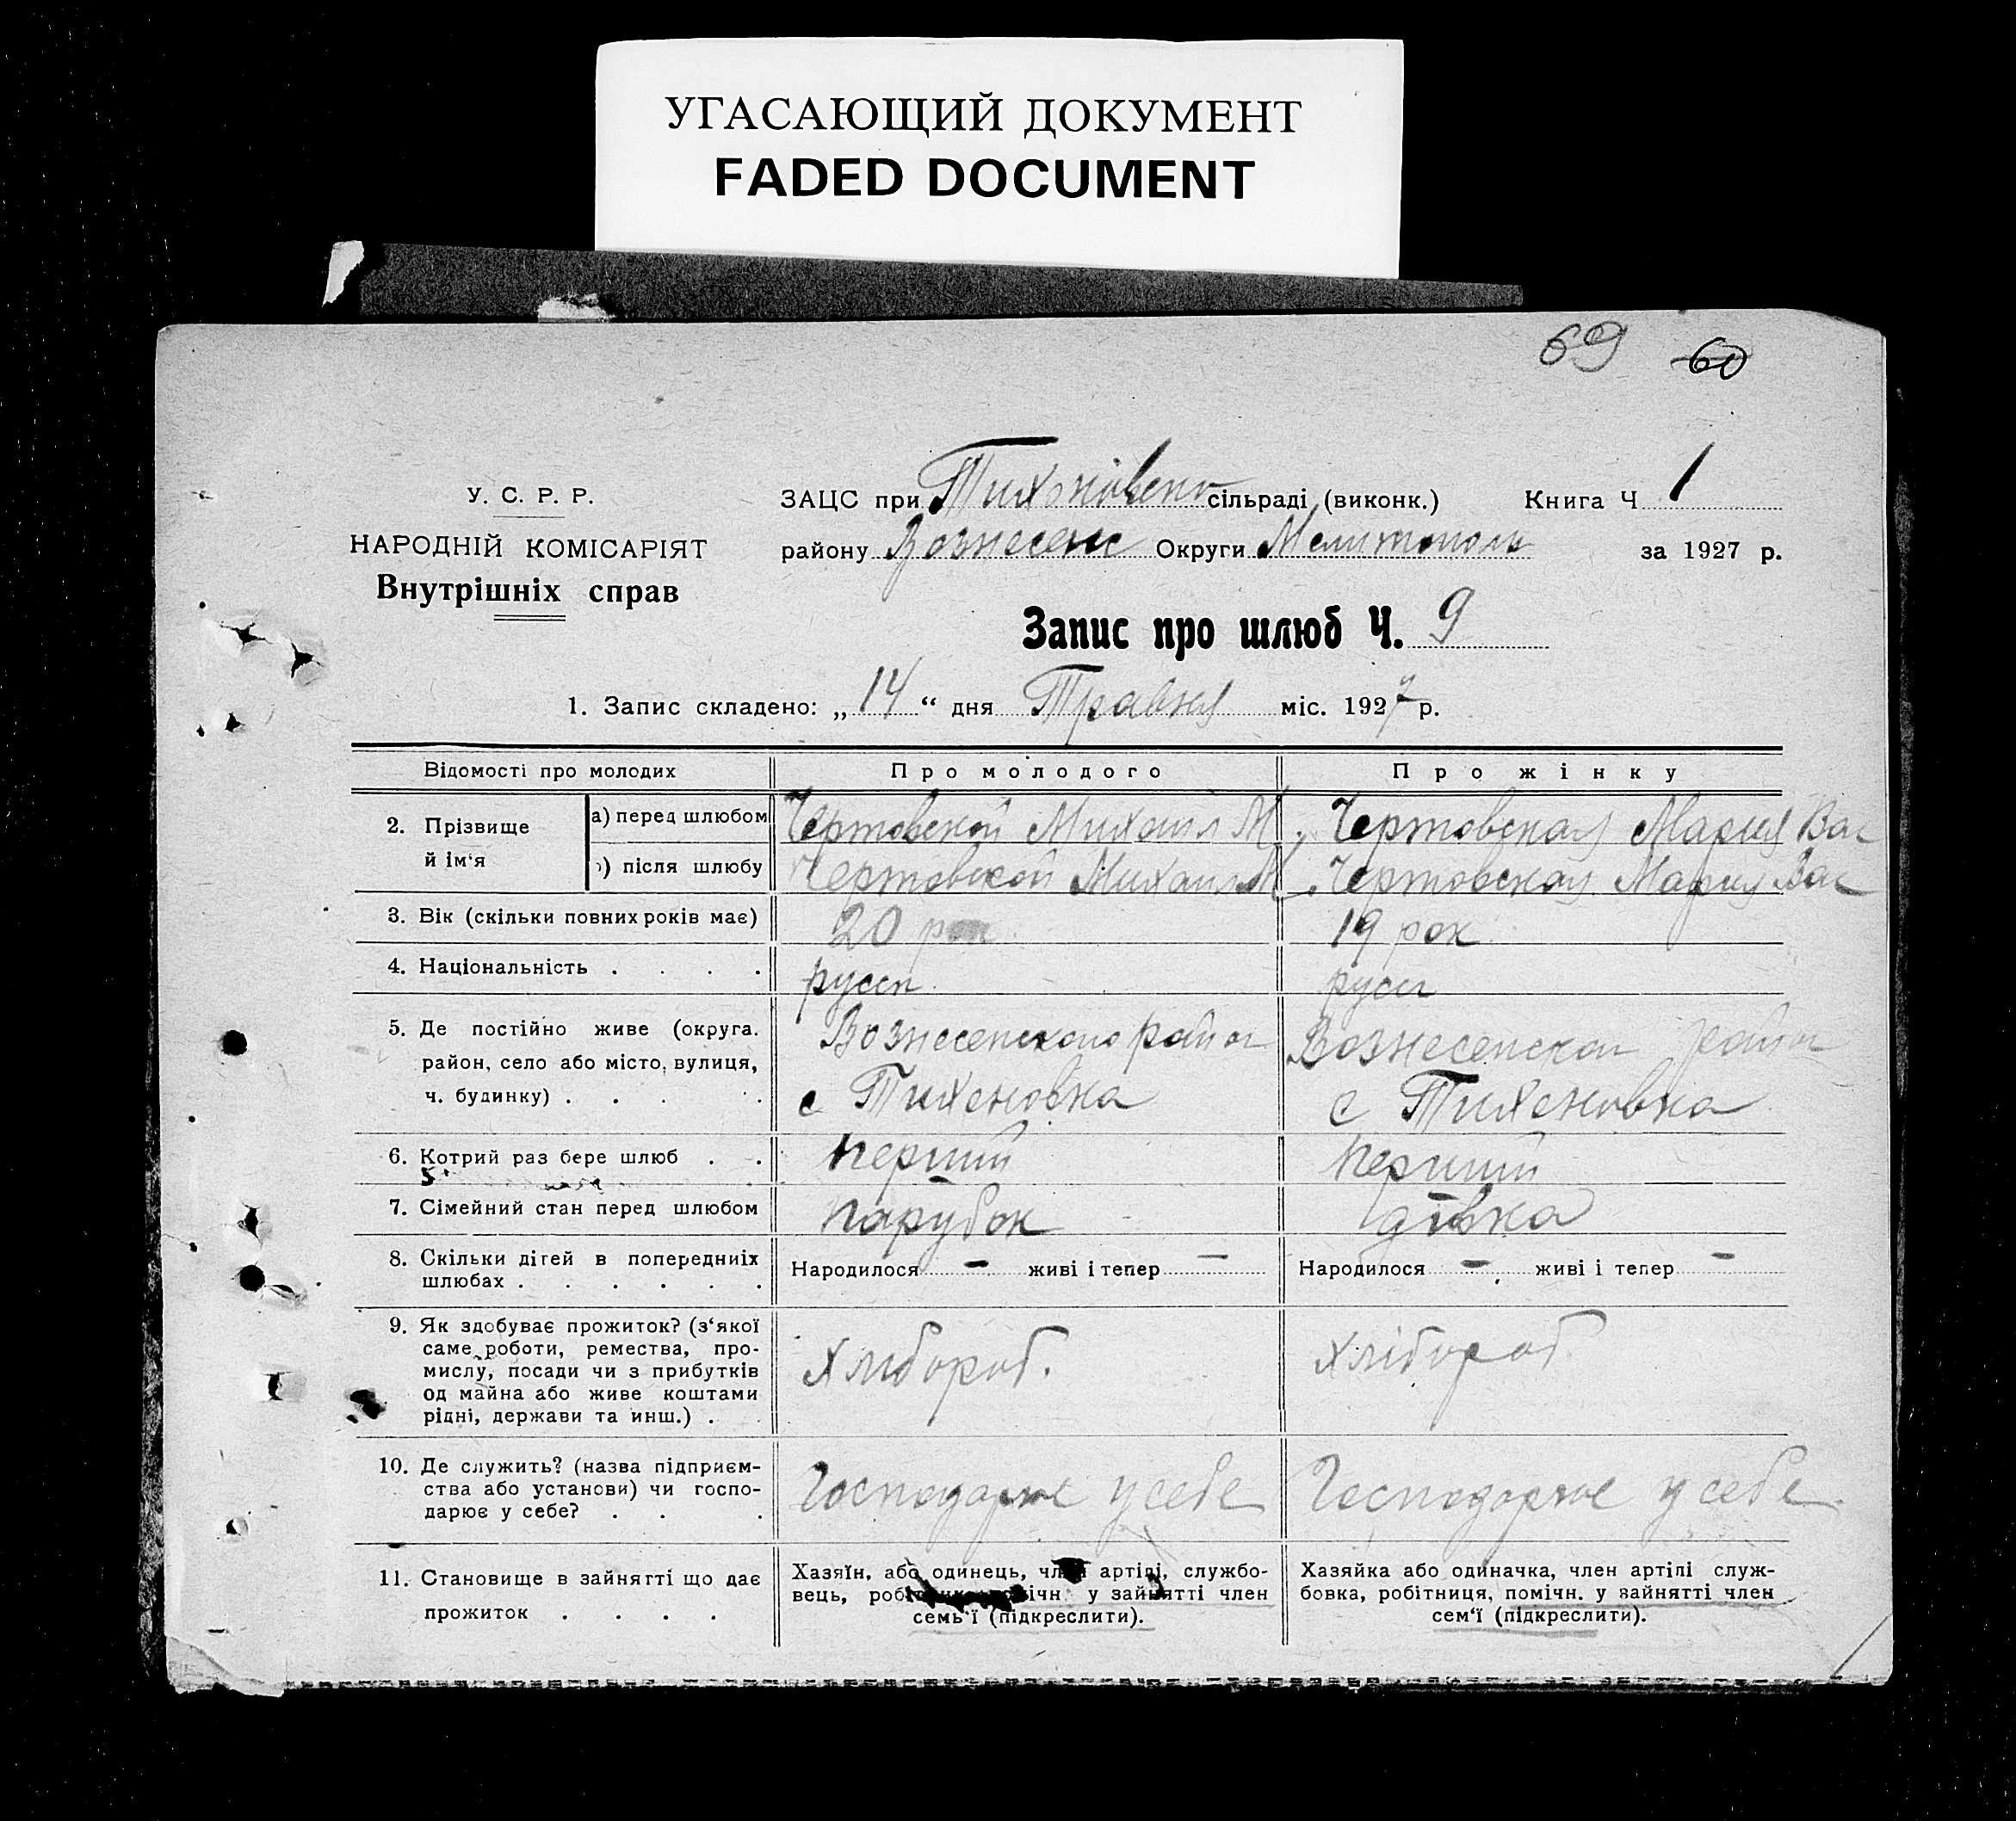 УГАСАЮЩИЙ ДОКУМЕНТ
FADED DOCUMENT
69 60
У. С. Р. Р.
НАРОДНІЙ КОМІСАРІЯТ
Внутрішніх справ
ЗАЦС при Тихоновско сільраді (виконк.) Книга Ч 1
району Вознесенс Округи Мелитополь за 1927 р.
Запис про шлюб Ч. 9
1. Запис складено: „ 14 “ дня Травня міс. 1927 р.
Відомості про молодих Про молодого Про жінку
2. Прізвище й ім‘я
а) перед шлюбом Чертовской Михаил М. Чертовская Мария Вас
б) після шлюбу Чертовской Михаил М. Чертовская Мария Вас
3. Вік (скільки повних років має) 20 рок 19 рок
4. Національність . . . . русск русс
5. Де постійно живе (округа. район, село або місто, вулиця, ч. будинку) . . . .
Вознесенского район
с Тихоновка
Вознесенског район
с Тихоновка
6. Котрий раз бере шлюб . . перший перший
7. Сімейний стан перед шлюбом парубок дівка
8. Скільки дітей в попередніх шлюбах . . . . . .
Народилося – живі і тепер –
Народилося – живі і тепер –
9. Як здобуває прожиток? (з‘якої
саме роботи, ремества, про-
мислу, посади чи з прибутків
од майна або живе коштами
рідні, держави та инш.) . .
хлібороб.
хлібороб
10. Де служить? (назва підприєм-
ства або установи) чи госпо-
дарює у себе? . . .
Господарює у себе
Господарює у себе
11. Становище в зайнятті що дає
прожиток . . . .
Хазяїн, або одинець, член артілі, службо-
вець, робітник, помічн. у зайнятті член
семь‘ї (підкреслити).
Хазяйка або одиначка, член артілі служ-
бовка, робітниця, помічн. у зайнятті член
сем‘ї (підкреслити).